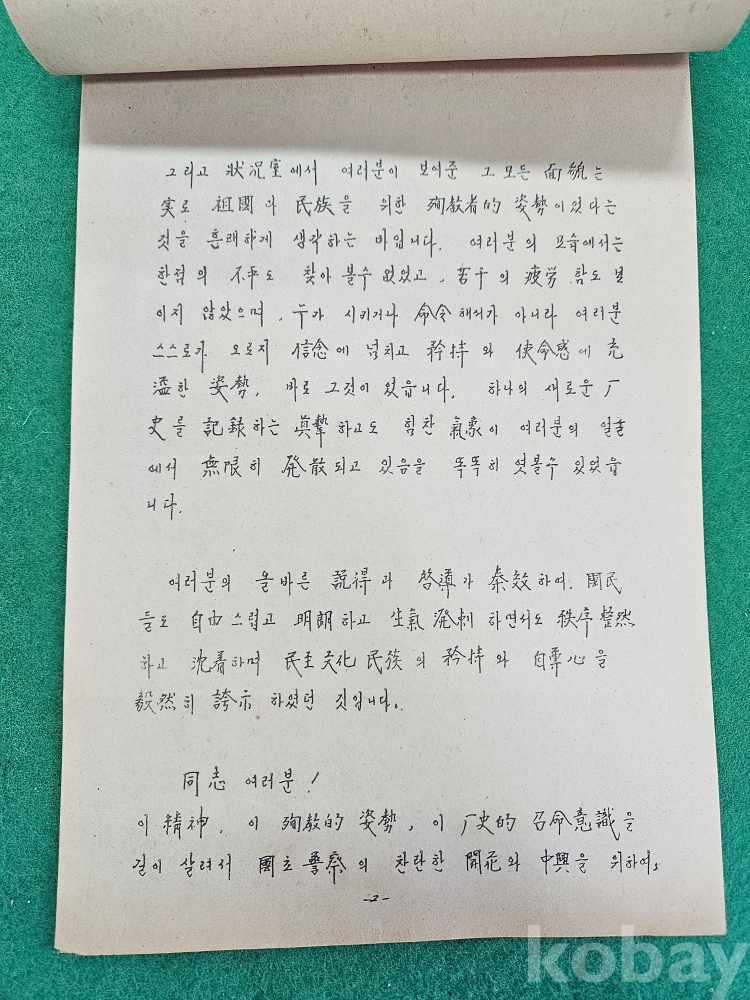 그리고 狀況室에서 여러분이 보여준 그 모든 面貌는
実로 祖國과 民族을 위한 殉教者的 姿勢이었다는
것을 흔쾌하게 생각하는 바입니다. 여러분의 모습에서는
한점의 不平도 찾아 볼수 없었고, 若干의 疲労함도 보
이지 않았으며, 누가 시키거나 命令해서가 아니라 여러분
스스로가 오로지 信念에 넘치고 矜持와 使命感에 充
溢한 姿勢, 바로 그것이 있읍니다. 하나의 새로운 厂
史를 記録하는 眞摯하고도 힘찬 氣象이 여러분의 얼굴
에서 無限히 発散되고 있음을 똑똑히 엿볼수 있었읍
니다.
여러분의 올바른 説得과 啓導가 奏効하여, 國民
들도 自由스럽고 明朗하고 生氣 溌剌하면서도 秩序整然
하고 沈着하며 民主文化民族의 矜持와 自尊心을
毅然히 誇示하였던 것입니다.
同志 여러분!
이 精神, 이 殉教的 姿勢, 이 厂史的 召命意識을
길이 살려서 國立警察의 찬란한 開花와 中興을 위하여,
-2-
kobay